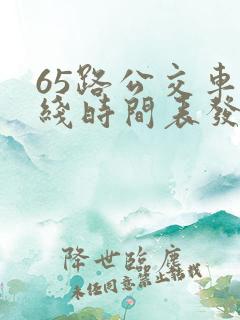 65路公交車
綫時間表發
降世臨塵
未经同意禁止转载